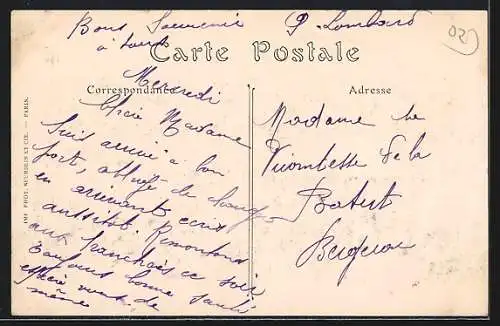 Bons Souvenirs
à tous
P. Lombard
02
Carte Postale
Correspondance
Adresse
Mercredi
Chère Madame
Suis arrivé à bon
port, de
en arrivant
aussitôt. Remontons
aux tranchées ce soir
toujours bonne santé
de
même
Madame la
Vicomtesse de la
Batut
Bergerac
IMP. PHOT. NEURDEIN ET CIE. — PARIS.